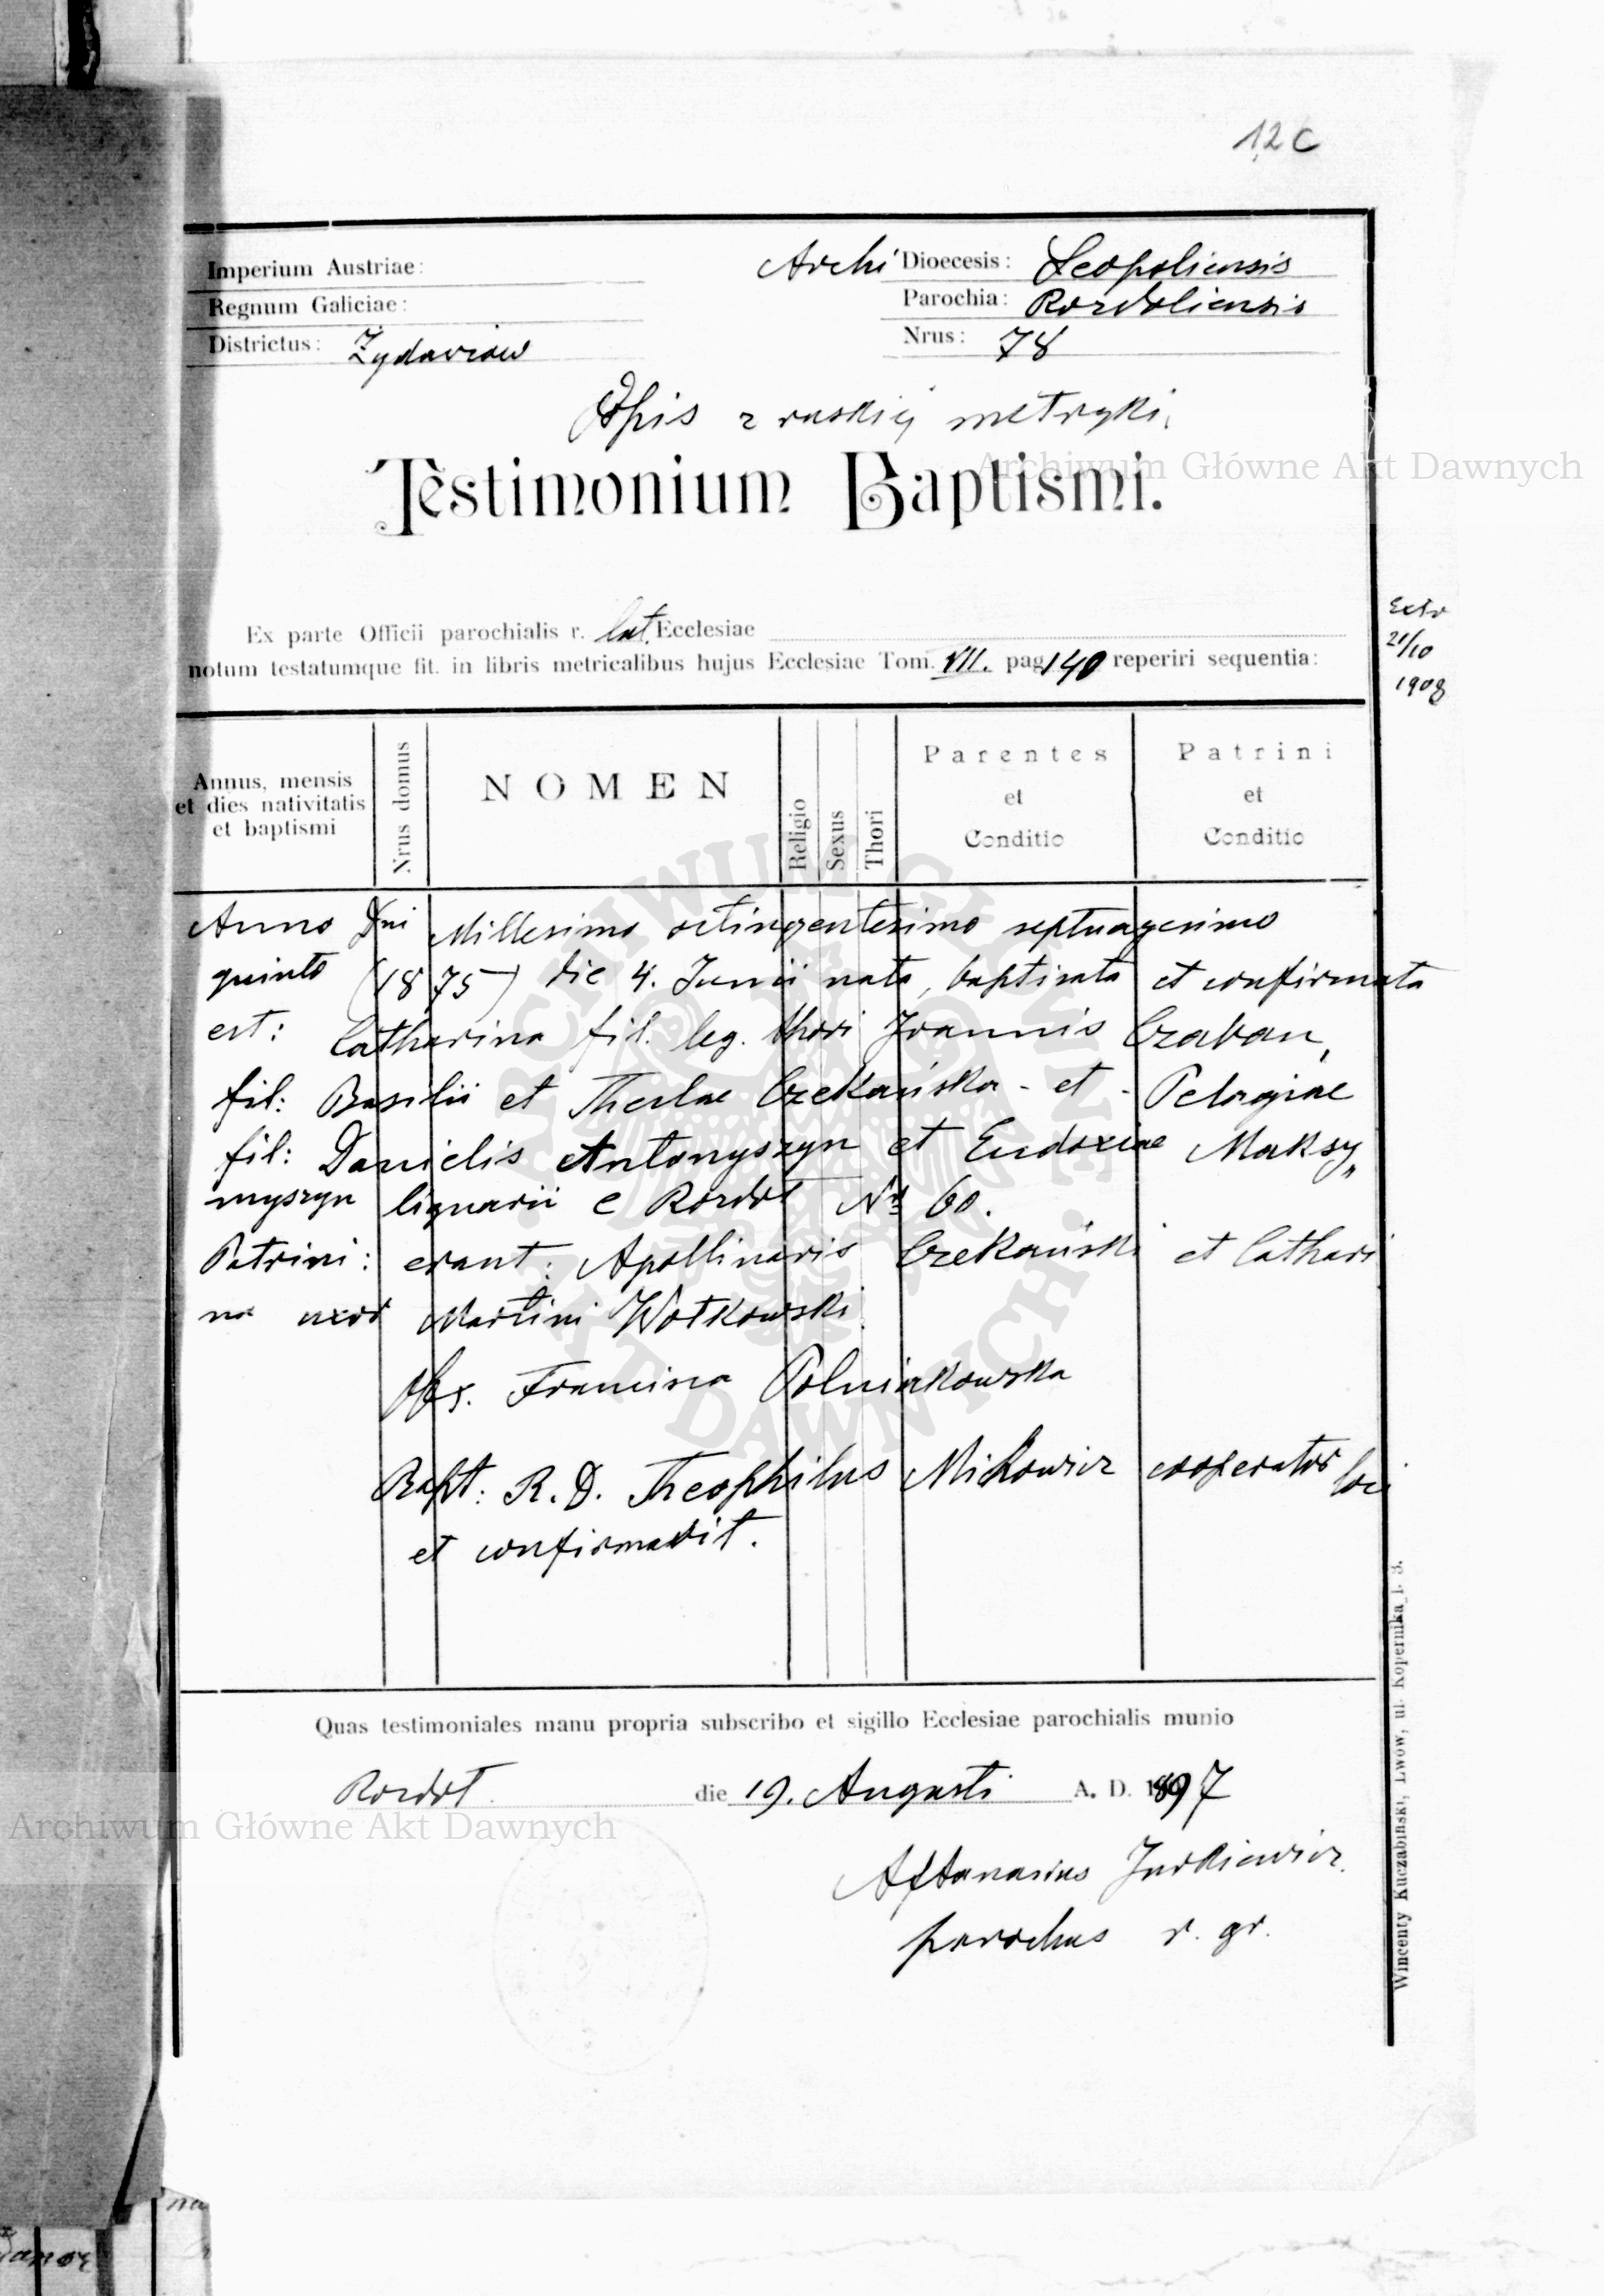 12c
Imperium Austriae:
Regnum Galiciae:
Districtus: Żydaczów
Archi Dioecesis: Leopoliensis
Parochia: Rozdoliensis
Nrus: 78
Odpis z ruskiej metryki.
Testimonium Baptismi.
Archiwum Główne Akt Dawnych
Ex parte Officii parochialis r. lat. Ecclesiae
notum testatumque fit. in libris metricalibus hujus Ecclesiae Tom. VII. pag. 140 reperiri sequentia:
Extr
21/10
1908
Annus, mensis et dies nativitatis et baptismi
Nrus domus
NOMEN
Religio
Sexus
Thori
Parentes et Conditio
Patrini et Conditio
Anno Dni Millesimo octingentesimo septuagesimo
quinto (1875) die 4. Junii nata, baptisata et confirmata
est: Catharina fil. leg. thori Joannis Czaban,
fil: Basilii et Theclae Czekańska - et - Pelagiae
fil: Danielis Antonyszyn et Eudoxiae Maksy„
myszyn lignarii e Rozdoł No 60.
Patrini: erant: Apollinaris Czekański et Cathari
na uxor Martini Wołkowski.
Obs. Francisca Polniakowska
Bapt: R. D. Theophilus Mikowicz cooperator loci
et confirmavit.
Quas testimoniales manu propria subscribo et sigillo Ecclesiae parochialis munio
Rozdoł die 19. Augusti A. D. 1897
Archiwum Główne Akt Dawnych
Aftanasius Jurkiewicz.
parochus r. gr.
Wincenty Kuczabiński, Lwów, ul. Kopernika l. 3.
ARCHIWUM GŁÓWNE AKT DAWNYCH